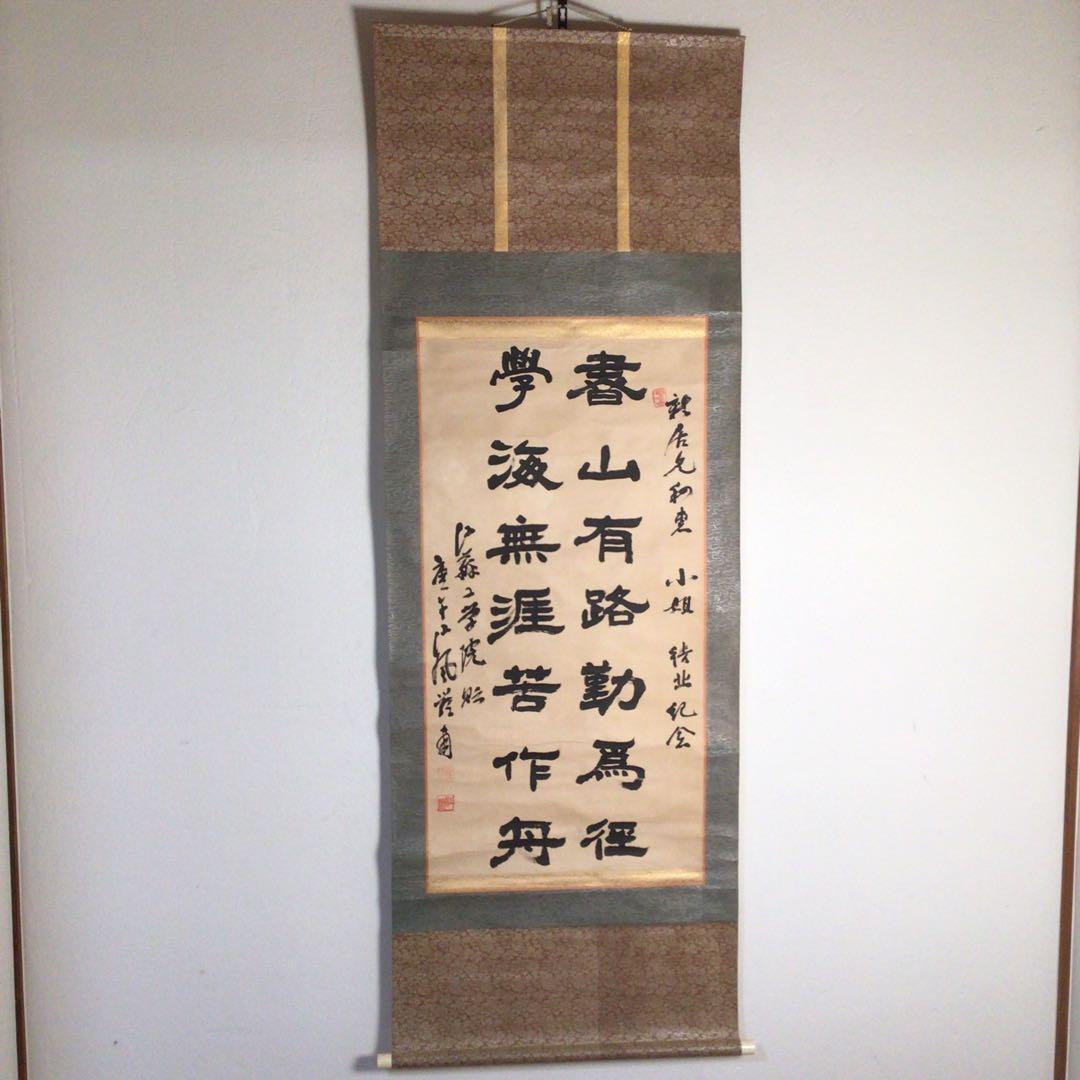 小姐 结业纪念
書山有路勤為徑
學海無涯苦作舟
江蘇工学院
庚午